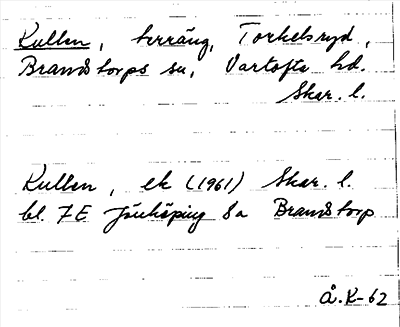 Kullen, terräng, Torkelsryd,
Brandstorps sn, Vartofta hd.
Skar. l.
Kullen, ek (1961) Skar. l.
bl. 7E Jönköping 8a Brandstorp
Å.K-62